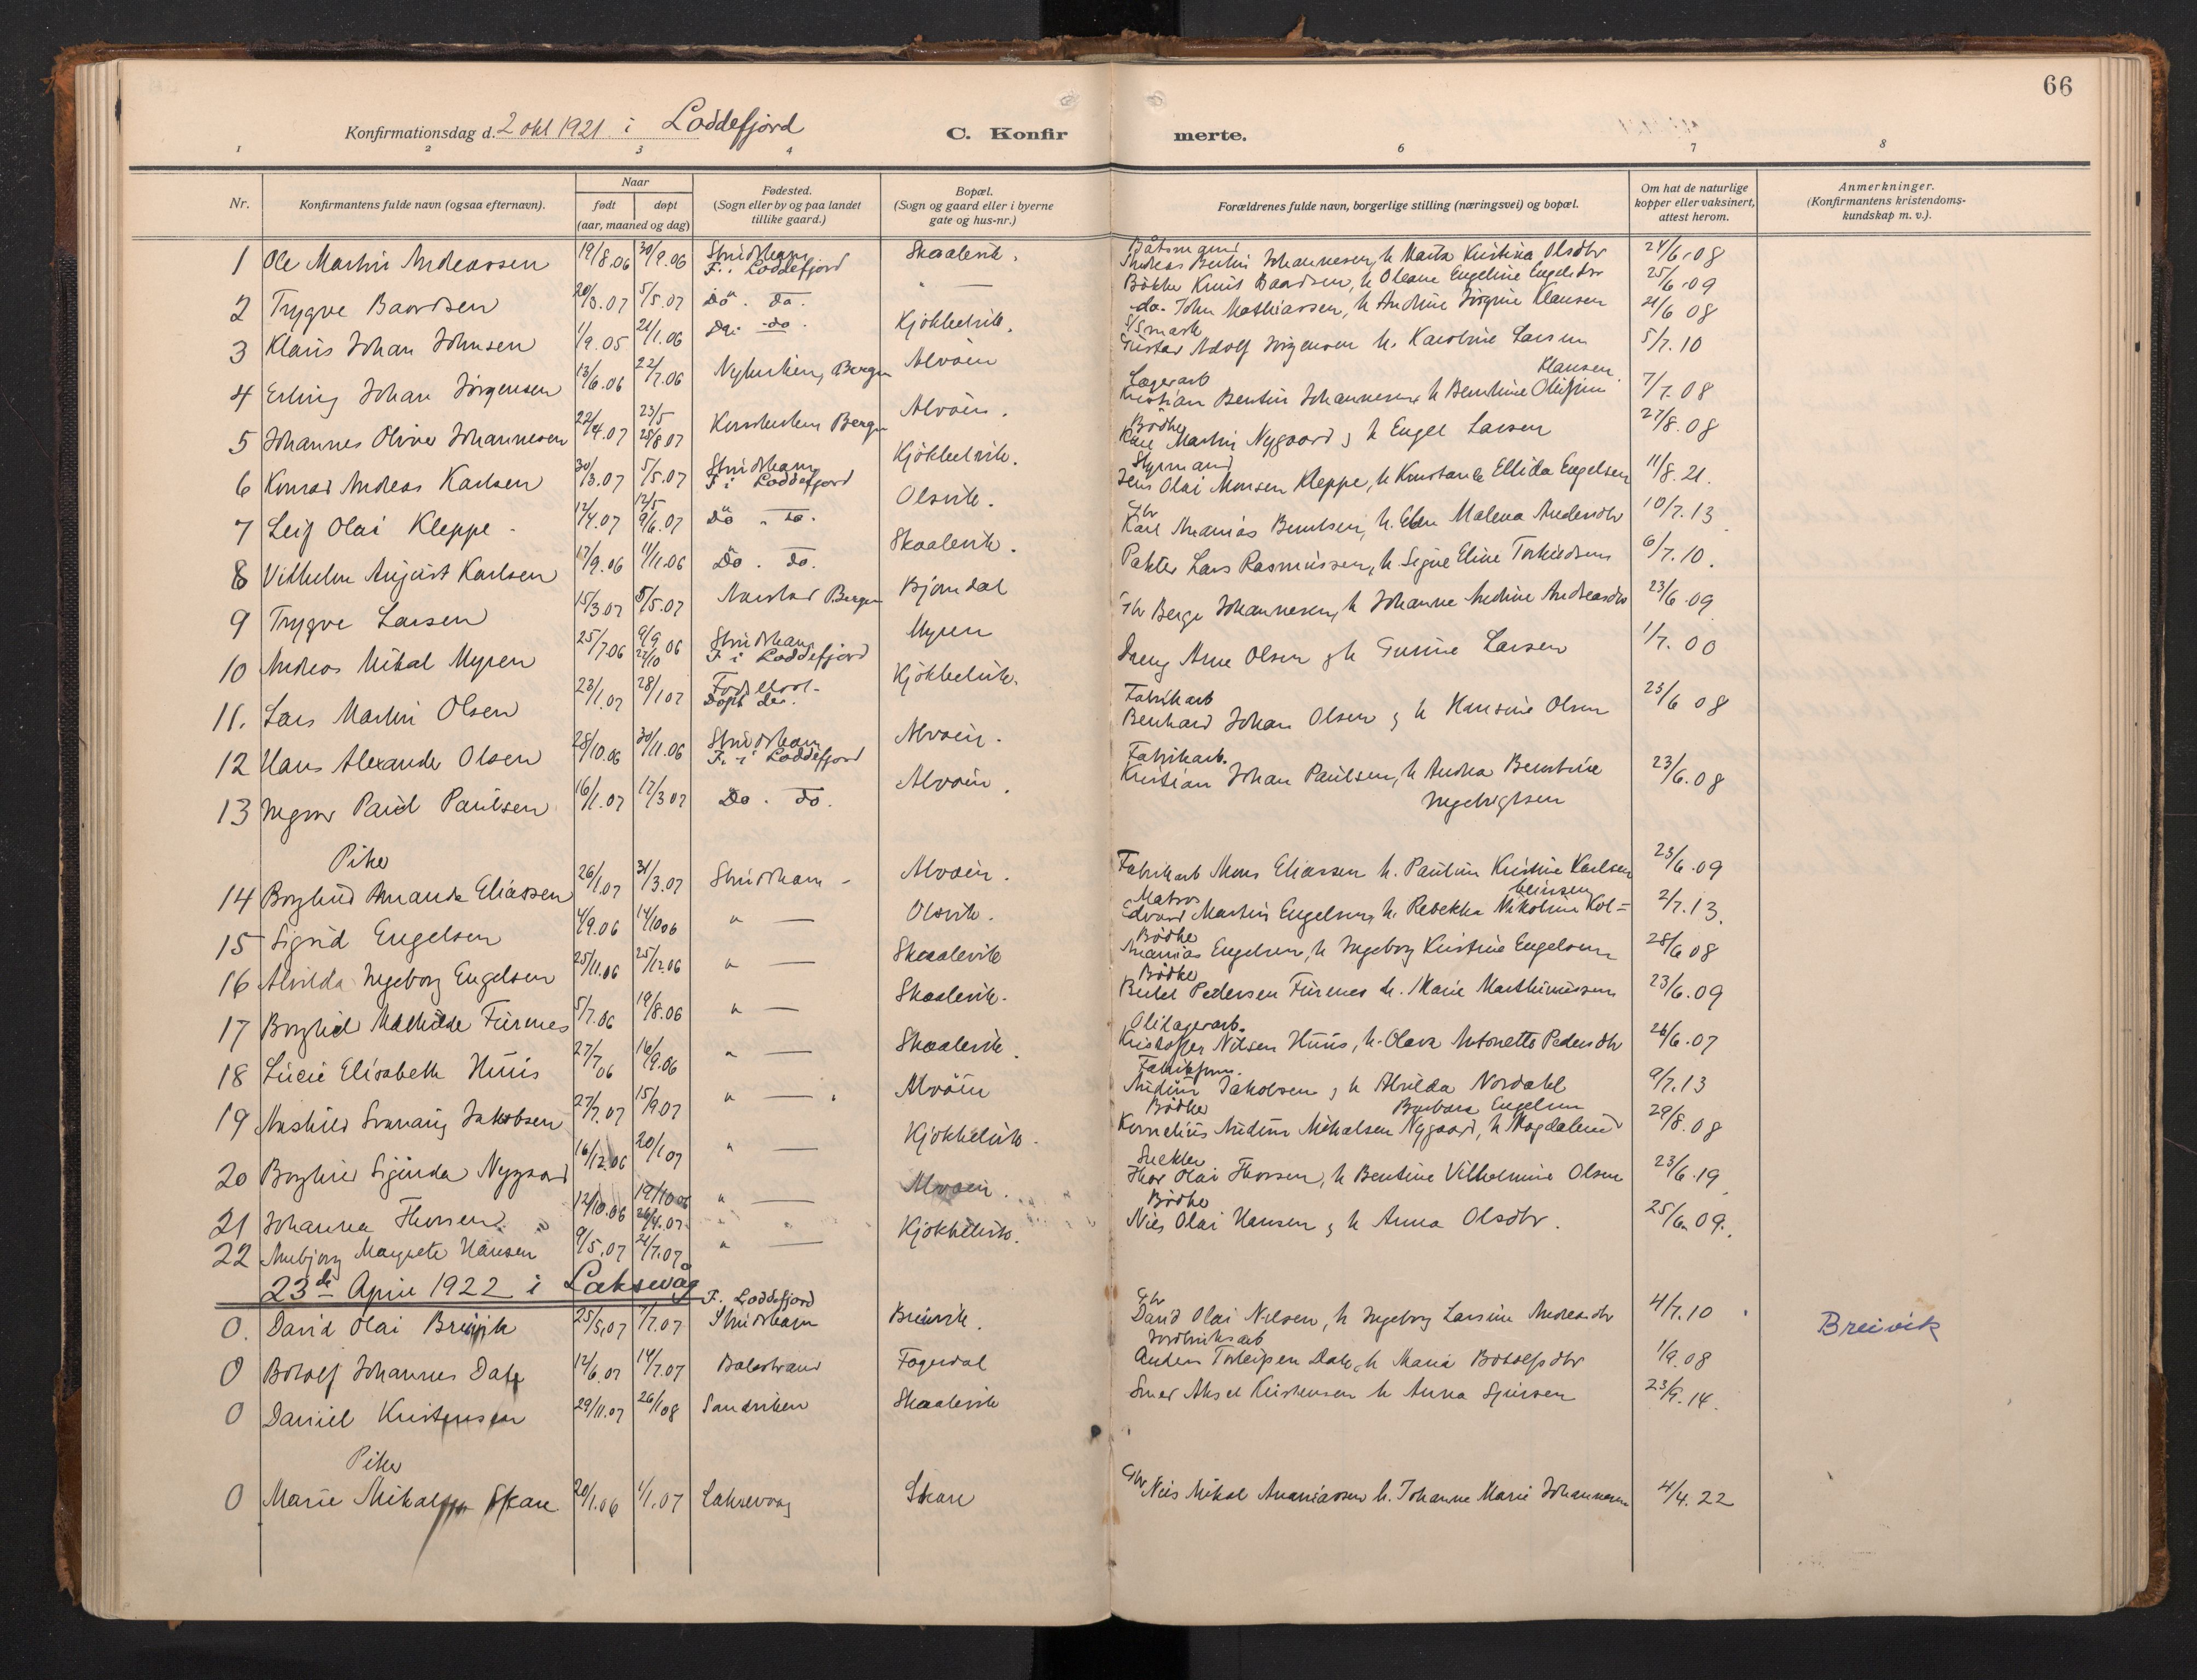 66
Konfirmationsdag d. 2 okt 1921 i Loddefjord
C. Konfirmerte.
1 2 3 4 6 7 8
Nr.
Konfirmantens fulde navn (ogsaa efternavn).
Naar
født døpt
(aar, maaned og dag)
Fødested.
(Sogn eller by og paa landet
tillike gaard.)
Bopæl.
(Sogn og gaard eller i byerne
gate og hus-nr.)
Forældrenes fulde navn, borgerlige stilling (næringsvei) og bopæl.
Om hat de naturlige
kopper eller vaksinert,
attest herom.
Anmerkninger.
(Konfirmantens kristendoms-
kundskap m. v.).
1 Ole Martin Andreassen 19/8.06 30/9.06 F. i Loddefjord Skaalevik. Andreas Bertin Johannesen, h Marta Kristina Olsdtr 24/6.08
2 Trygve Baardsen 20/3.07 5/5.07 do. do. Knut Baardsen, h Oleane Engeline 25/6.09
3 Klaus Johan Johnsen 1/9.05 21/1.06 do. do. Kjøkkelvik. do. John Mathiassen, h Andrine Jørgine Klausen 21/6 08
4 Erling Johan Jørgensen 13/6.06 22/7.06 Nykirken, Bergen Alvøen Gustav Adolf Jörgensen h. Karoline Larsen 5/7.10
5 Johannes Oliver Johannesen 22/4.07 23/5 25/8 07 Korskirken Bergen Alvøen. Lagerarb Kristian Bentin Johannesen, h Berntine Klausen 7/7.08
6 Konrad Andreas Karlsen 30/3.07 5/5.07 F i Loddefjord Kjøkkelvik. Bødker Karl Martin Nygaard, h Engel Larsen 27/8.08
7 Leif Olai Kleppe. 12/4.07 12/5 9/6.07 do. do. Olsvik. Styrmand Jens Olai Monsen Kleppe, h Konstanse Ellida Engelsen 11/8.21.
8 Vilhelm August Karlsen 17/9.06 4/11.06 do. do. Skaalevik. Karl Ananias Berntsen, h. Malena Andersdtr 10/7.13
9 Trygve Larsen 15/3.07 5/5.07 Bergen Bjørndal Pakter Lars Rasmussen, h. Signe Eline 6/7.10.
10 Andreas Mikal Myren 25/7.06 9/9 06 F i Loddefjord Myren Berge Johannesen, h Johanne 23/6.09
11. Lars Martin Olsen 23/1.07 28/1 07 Kjøkkelvik. Dreng Arne Olsen & h Gurine Larsen 1/7.00
12 Hans Alexander Olsen 28/10.06 30/11.06 F. i Loddefjord Alvøen. Fabrikarb Bernhard Johan Olsen & h Hansine Olsen 23/6 08
13 Ingvar Paul Paulsen 16/1.07 17/3 07 do. do. Alvøen. Fabrikarb. Kristian Johan Paulsen, h Andrea Berntine Ingebrigtsen 23/6.08
Piker
14 Borghild Amanda Eliassen 26/1.07 31/3.07 Alvøen. Fabrikarb Mons Eliassen h. Pauline Kristine Karlsen 23/6.09
15 Sigrid Engelsen 4/9.06 14/10 06 " — Olsvik. Matros Edvard Martin Engelsen, h. Rebekka Nikoline Kol= beinsen 2/7.13.
16 Alvilda Ingeborg Engelsen 25/11.06 25/12.06 " — Skaalevik Bødker Ananias Engelsen, h Ingeborg Kristine Engelsen 28/6 08
17 Borghild Mathilde Furenes 5/7.06 19/8.06 " — Skaalevik. Bødker Bertel Pedersen Furenes h. Marie 23/6.09
18 Lucie Elisabeth Huus 27/7 06 16/9.06 " — Skaalevik. Kristoffer Nilsen Huus, h. Olava Antonette Pedersdtr 26/6.07
19 Jakobsen 27/7.07 15/9 07 " — Alvøen Jakobsen, h Alvilda Nordahl 9/7.13
20 Borghild Nygaard 16/12.06 20/1 07 " — Kjøkkelvik. Bødker Kornelius Mikalsen Nygaard, h Magdalena Barbara Engelsen 29/8.08
21 Johanna Thorsen 12/10.06 19/10 06 " — Alvøen. Snekker Thor Olai Thorsen, h Bentine Vilhelmine Olsen 23/6.19
22 Margrete Hansen 9/5.07 21/7.07 " — Kjøkkelvik. Bødker Nils Olai Hansen, h Anna Olsdtr. 25/6.09.
23de April 1922 i Laksevåg
0. David Olai Breivik 25/5.07 7/7.07 F. Loddefjord Breivik. David Olai Nilsen, h Ingeborg Larsine Andreasdtr 4/7.10 Breivik
0 Botolf Johannes Dale 12/6.07 14/7.07 Balestrand Fagerdal Jordbruksarb Anders Torleifsen Dale, h Maria Botolfsdtr 1/9.08
0 Daniel Kristensen 29/11.07 26/1 08 Sandviken Skaalevik Smed Aksel Kristensen h Anna 23/9.14.
Piker
0 Marie Mikalsen Skare 20/1.06 1/1.07 Laksevaag Skare Nils Mikal Ananiassen h. Johanne Marie Johannesen 4/4.22